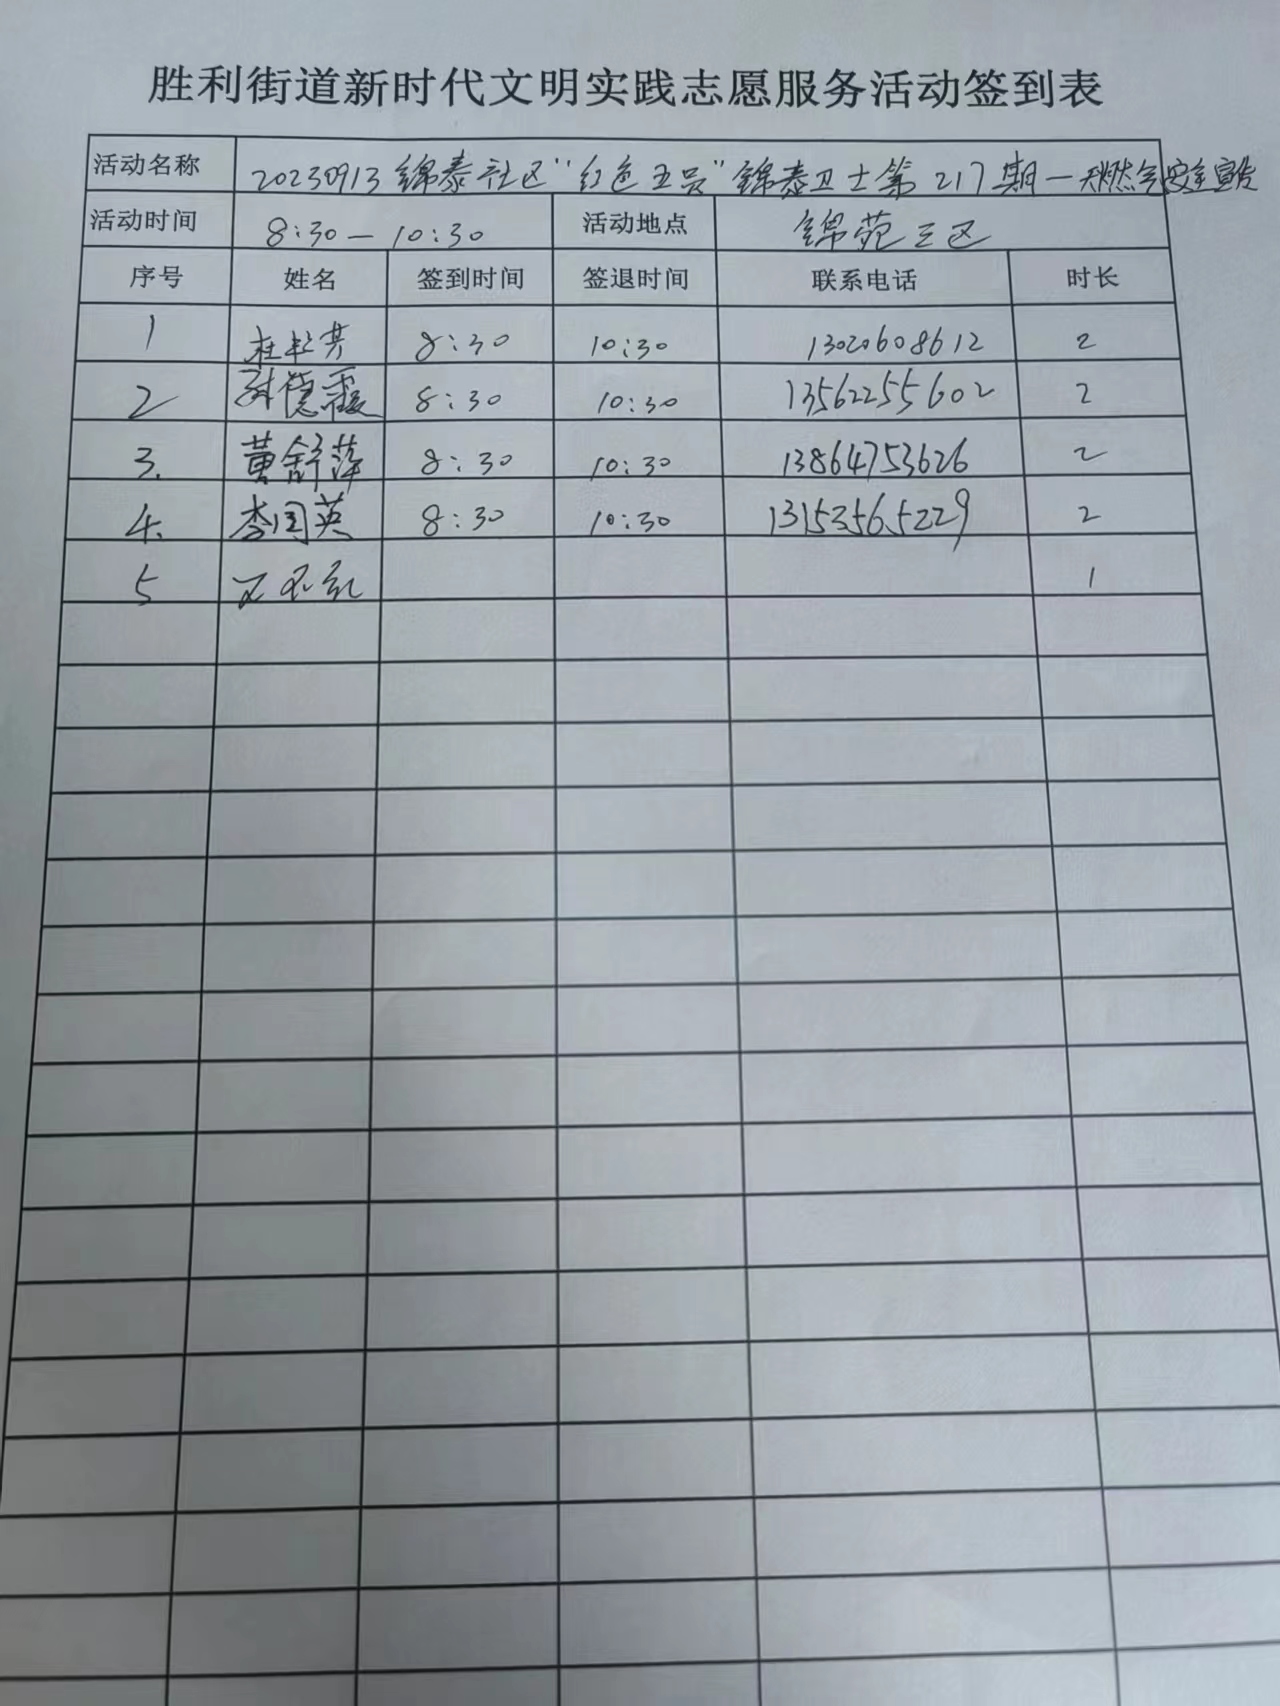 胜利街道新时代文明实践志愿服务活动签到表
活动名称 20230913锦泰社区"红色五员"锦泰卫士第217期—天燃气安全宣传
活动时间 8:30—10:30 活动地点 锦苑三区
序号 姓名 签到时间 签退时间 联系电话 时长
1 杜 8:30 10:30 13020608612 2
2 德霞 8:30 10:30 13562255602 2
3. 黄舒萍 8:30 10:30 13864753626 2
4. 李国英 8:30 10:30 13153565229 2
5 1